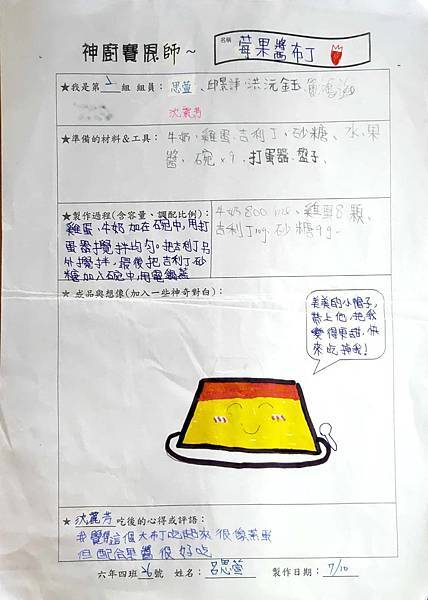 神廚賽恩師~
名稱 莓果醬布丁
★我是第 組 組員：思萱、邱景諄 洪沅鈺
沈麗芳
★準備的材料&工具：牛奶、雞蛋、吉利丁、砂糖、水果
醬、碗×9、打蛋器、盤子、
★製作過程(含容量、調配比例)：
雞蛋、牛奶加在碗中,用打
蛋器攪拌均勻。把吉利丁另
外攪拌,最後把吉利丁、砂
糖加入碗中,用電鍋蒸
牛奶800ml、雞蛋8顆、
吉利丁10g、砂糖9g。
★ 成品與想像(加入一些神奇對白)：
美美的小帽子,
帶上他,把我
變得更甜,快
來吃掉我!
★ 沈麗芳 吃後的心得或評語：
我覺得這個布丁吃起來很像蒸蛋
但配合果醬很好吃
六年四班26號 姓名：呂思萱 製作日期：7/10